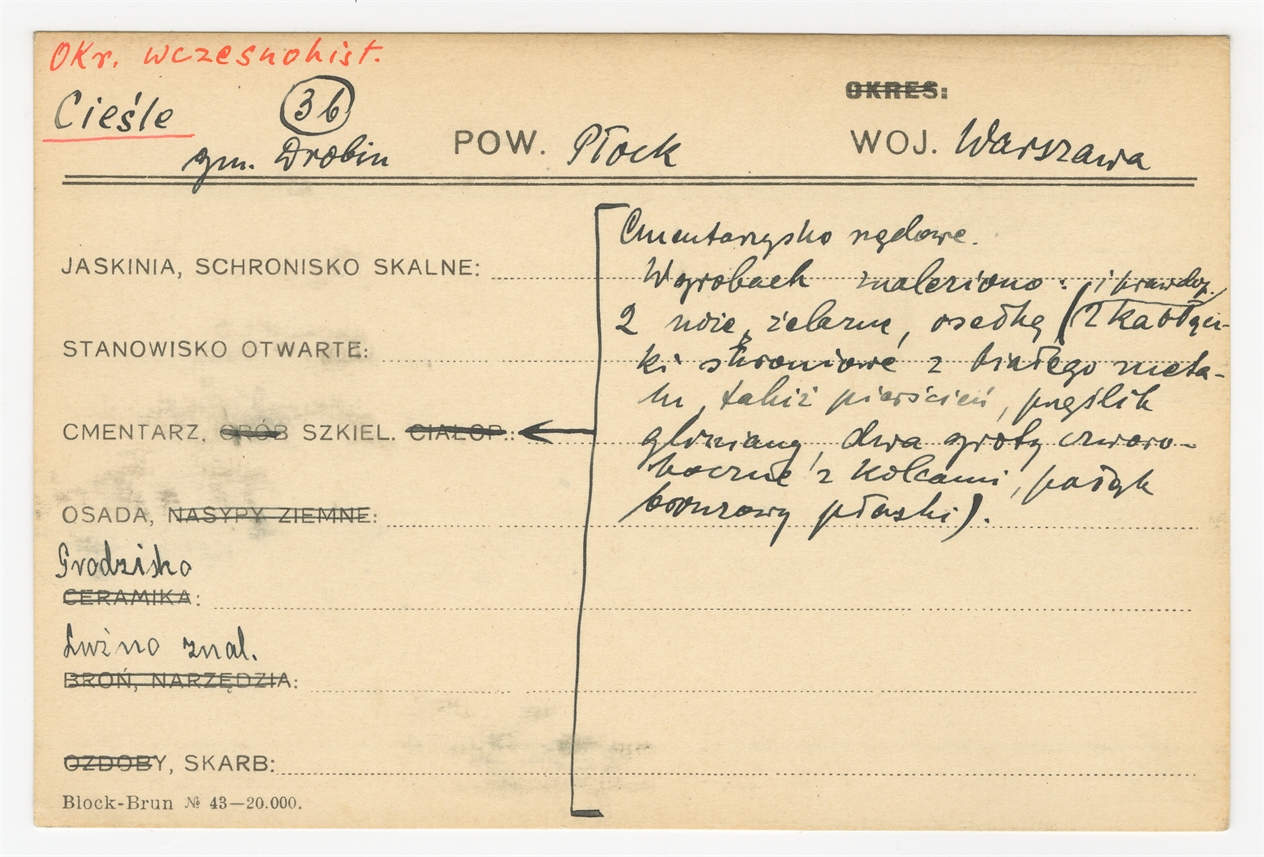 Okr. wczesnohist.
OKRES:
Cieśle 36
gm. Drobin POW. Płock WOJ. Warszawa
Cmentarzysko rzędowe.
JASKINIA, SCHRONISKO SKALNE:
W grobach znaleziono: i prawdop.
2 noże żelazne, osełkę (2 kabłącz-
STANOWISKO OTWARTE:
ki skroniowe z białego meta-
lu, takiż pierścień, przęślik
CMENTARZ, GRÓB SZKIEL. CIAŁOP.:
gliniany, dwa groty czworo-
boczne z kolcami, paciorek
OSADA, NASYPY ZIEMNE:
bronzowy płaski).
Grodzisko
CERAMIKA:
Luźno znal.
BROŃ, NARZĘDZIA:
OZDOBY, SKARB:
Block-Brun № 43—20.000.